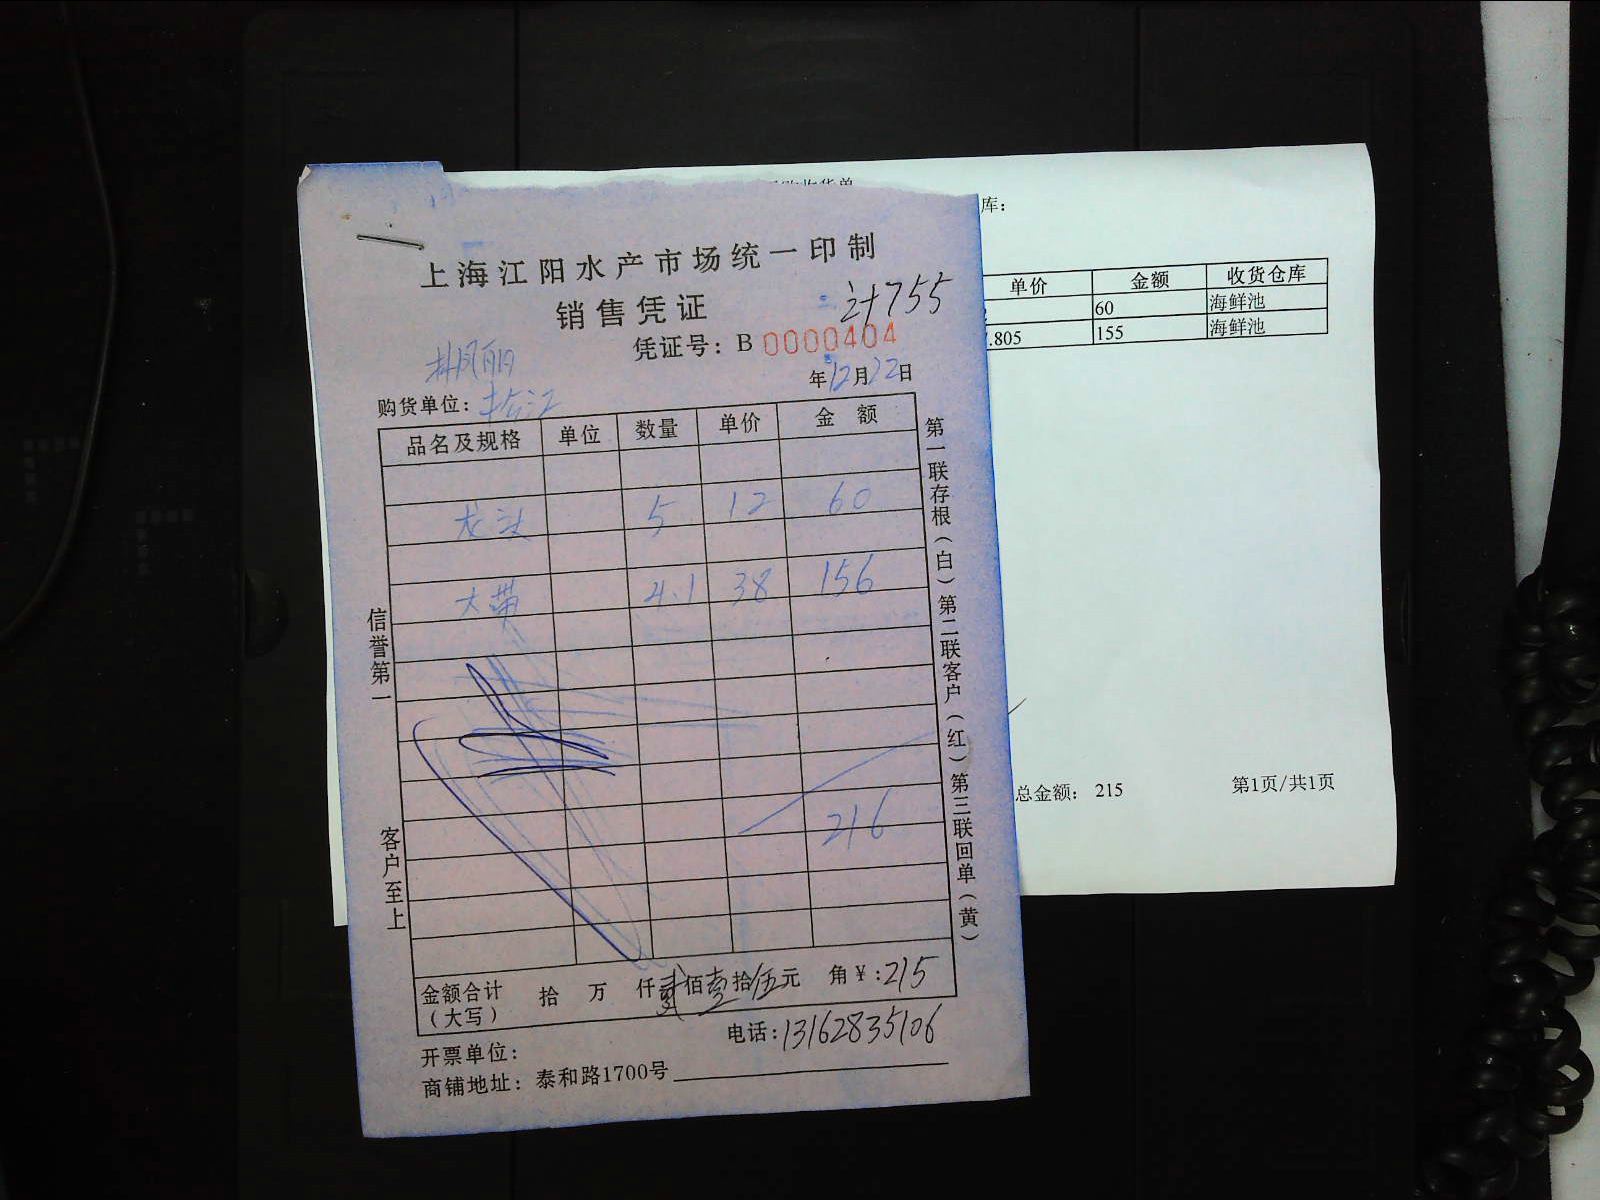 上海江阳水产市场统一印制
销售凭证
计755
凭证号：B 0000404
年12月22日
购货单位：
品名及规格 单位 数量 单价 金 额
龙头 5 12 60
大带 4.1 38 156
216
金额合计（大写） 拾 万 仟 贰佰壹拾伍元 角￥:215
电话:13162835106
开票单位：
商铺地址：泰和路1700号
信誉第一
客户至上
第一联存根（白）第二联客户（红）第三联回单（黄）
收货单
库：
单价 金额 收货仓库
60 海鲜池
.805 155 海鲜池
总金额： 215 第1页/共1页